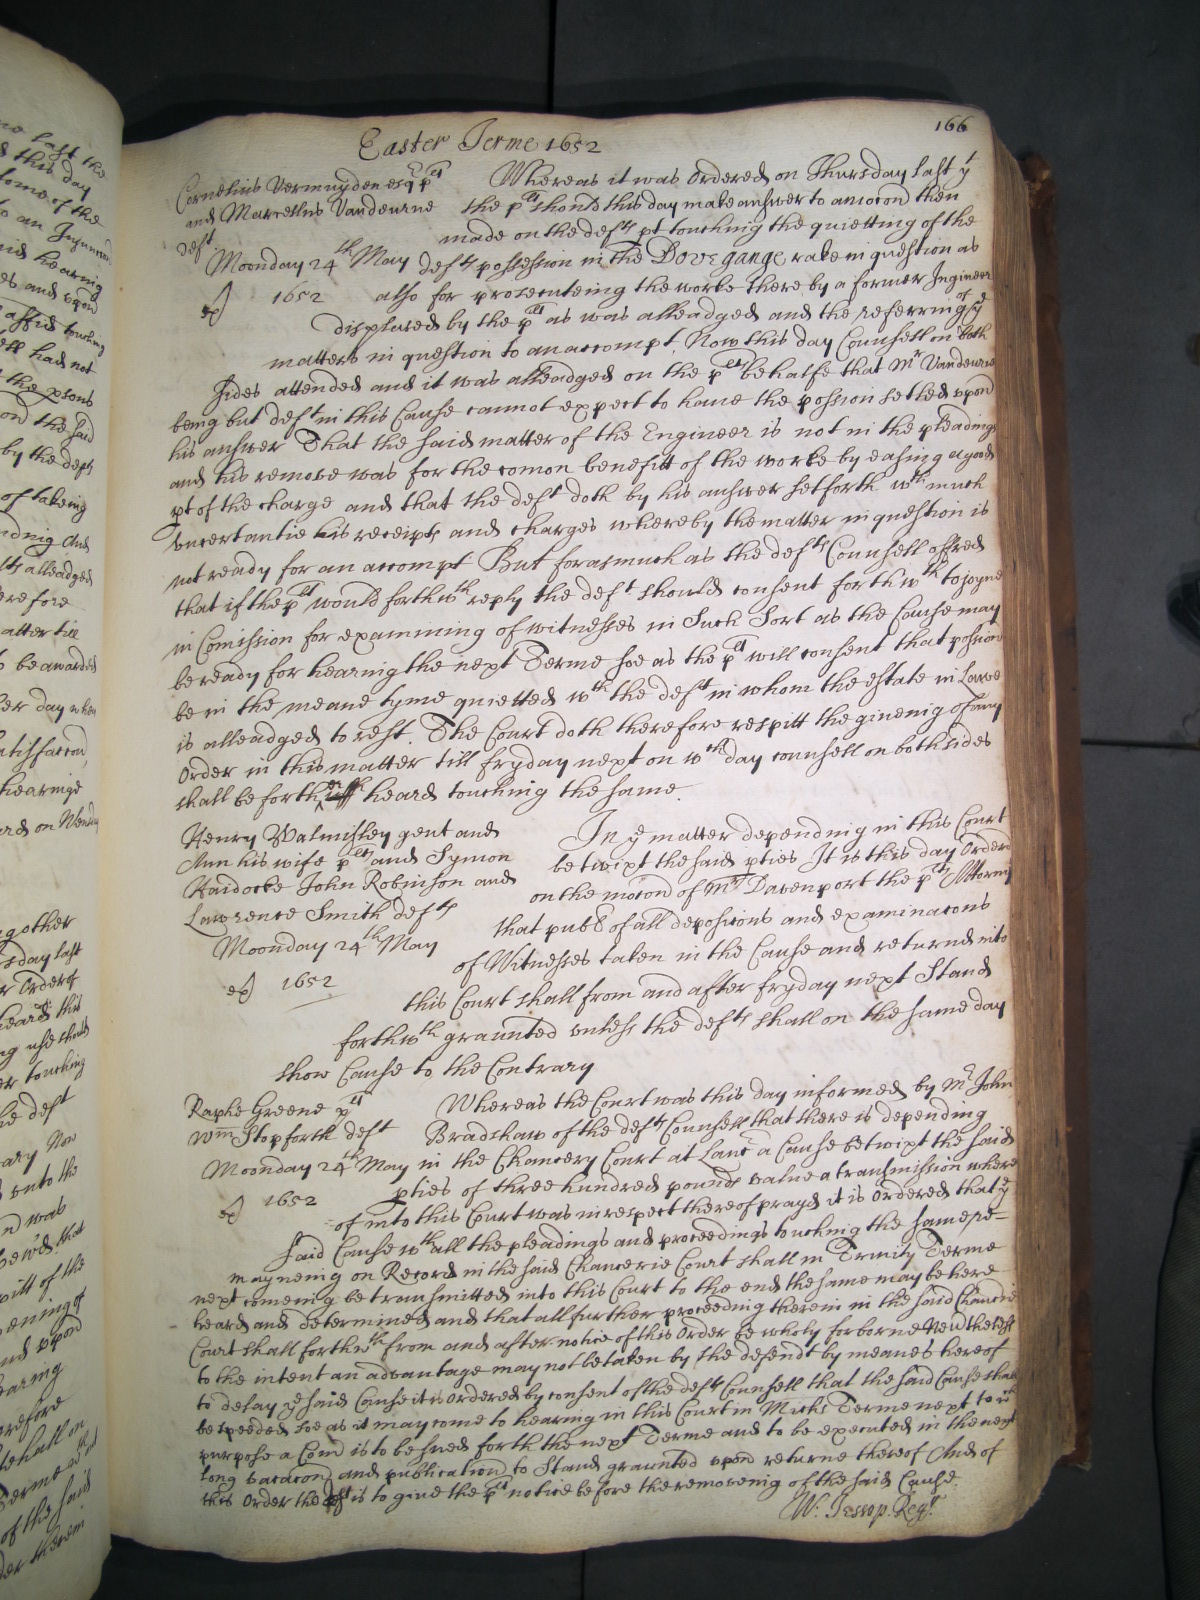 166
Easter Terme 1652
Cornelius Vermuyden esqr plt
and Marcellus Vandeurne
deft
Moonday 24th May
ex 1652
Whereas it was Ordered on Thursday last yt
the plt should this day make answer to a mocon then
made on the defts pt touching the quietting of the
defts possession in the Dovegange rake in question as
also for prosecuteing the worke there by a former Ingineer
displaced by the plt as was alleadged and the referring of ye
matters in question to an accompt Now this day Counsell on both
sides attended and it was alleadged on the plts behalfe that Mr Vandeurne
being but deft in this Cause cannot expect to have the possion setled upon
his answer That the said matter of the Engineer is not in the pleadings
and his remove was for the comon benefitt of the worke by easing a good
pt of the charge and that the deft doth by his answer setforth wth much
uncertantie his receipts and charges whereby the matter in question is
not ready for an accompt But forasmuch as the defts Counsell offred
that if the plt would forthwth reply the deft should consent forthwth to joyne
in Comission for examining of witnesses in Such Sort as the Cause may
be ready for hearing the next Terme soe as the plt will consent that possion
be in the meane tyme quietted wth the deft in whom the estate in Lawe
is alleadged to rest. The Court doth therefore respitt the giveing of any
Order in this matter till fryday next on wch day counsell on both sides
shall be forther heard touching the same.
Henry Walmisley gent and
Ann his wife plts and Symon
Haidocke John Robinson and
Lawrence Smith defts
Moonday 24th May
ex 1652
In ye matter depending in this Court
betwixt the said pties It is this day Ordered
on the mocon of Mr Davenport the plts Attorny
that publ of all deposicons and examinacons
of Witnesses taken in the Cause and returned into
this Court shall from and after fryday next Stand
forthwth graunted unless the defts shall on the same day
show Cause to the Contrary
Raphe Greene plt
Wm Stopforth deft
Moonday 24th May
ex 1652
Whereas the Court was this day informed by Mr John
Bradshaw of the defts Counsell that there is depending
in the Chancery Court at Lanc a Cause betwixt the said
pties of three hundred pounds value a transmission where
of into this Court was in respect thereof prayd it is Ordered that ye
said Cause wth all the pleadings and proceedings touching the same re-
mayneing on Record in the said Chancerie Court shall in Trinity Terme
next comeing be transmitted into this Court to the end the same may be here
heard and determined and that all further proceeding therein in the said Chancerie
Court shall forthwth from and after notice of this Order be wholy forborne Nevertheless
to the intent an advantage may not be taken by the defendt by meanes hereof
to delay ye said Cause it is Ordered by consent of the defts Counsell that the said Cause shall
be speeded soe as it may come to hearing in this Court in Michs Terme next to wch
purpose a Com is to be sued forth the next Terme and to be executed in the next
long vacacon and publication to Stand graunted upon returne thereof And of
this Order the deft is to give the plt notice before the removeing of the said Cause.
W: Jessop. Regr.